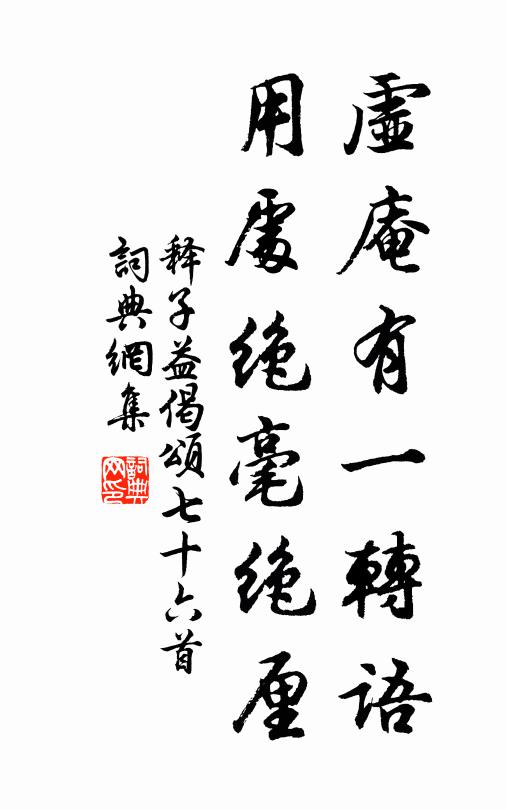 虛庵有一轉語
用處絶毫絶厘
释子益偈頌七十六首
詞典網集
詞典
网印